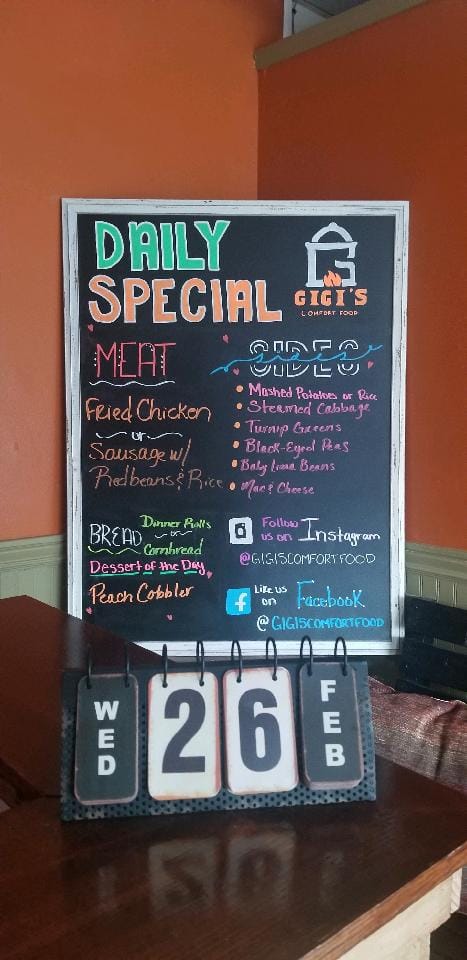 DAILY
SPECIAL
GIGI'S
COMFORT FOOD
MEAT
Fried Chicken
or
Sausage w/
Redbeans & Rice
SIDES
Mashed Potatoes or Rice
Steamed Cabbage
Turnip Greens
Black-Eyed Peas
Baby Lima Beans
Mac & Cheese
BREAD
Dinner Rolls
or
Cornbread
Dessert of the Day
Peach Cobbler
Follow us on Instagram
@GIGISCOMFORTFOOD
f
Like us on Facebook
@GIGISCOMFORTFOOD
WED 26 FEB